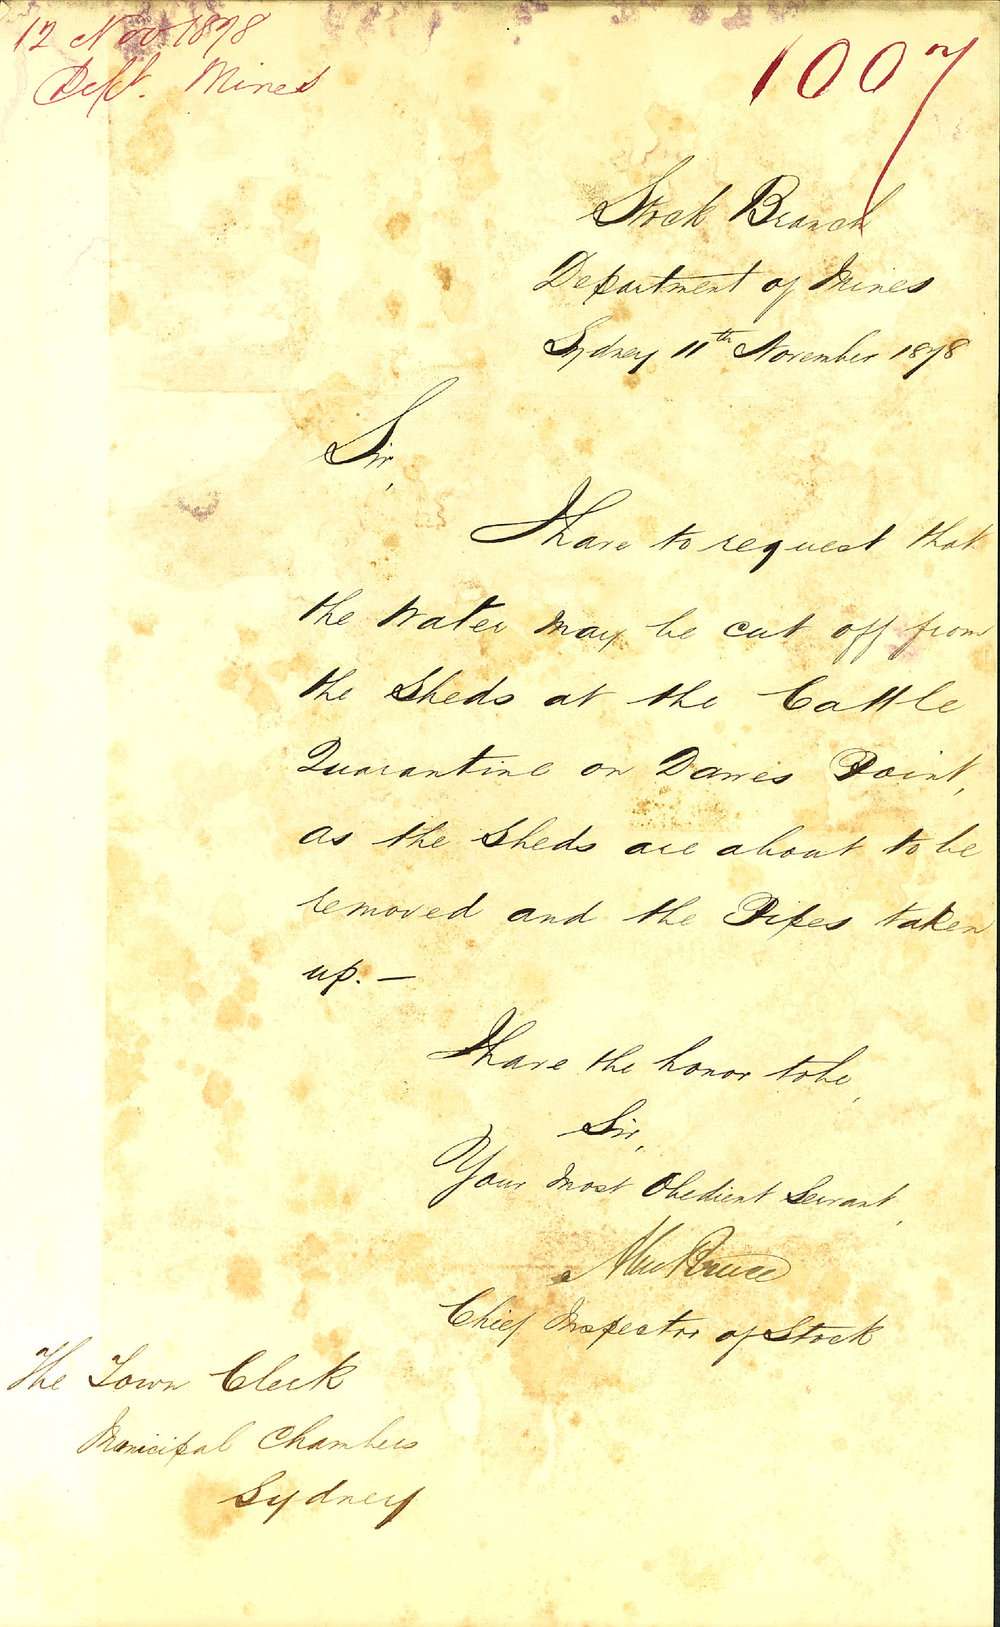 12 Nov 1878
Dept. Mines
1007
Stock Branch
Department of Mines
Sydney 11th November 1878
Sir,
I have to request that
the Water may be cut off from
the Sheds at the Cattle
Quarantine on Dawes Point,
as the Sheds are about to be
removed and the Pipes taken
up. —
I have the honor to be,
Sir,
Your most Obedient Servant,
Alex Bruce
Chief Inspector of Stock
The Town Clerk
Municipal Chambers
Sydney